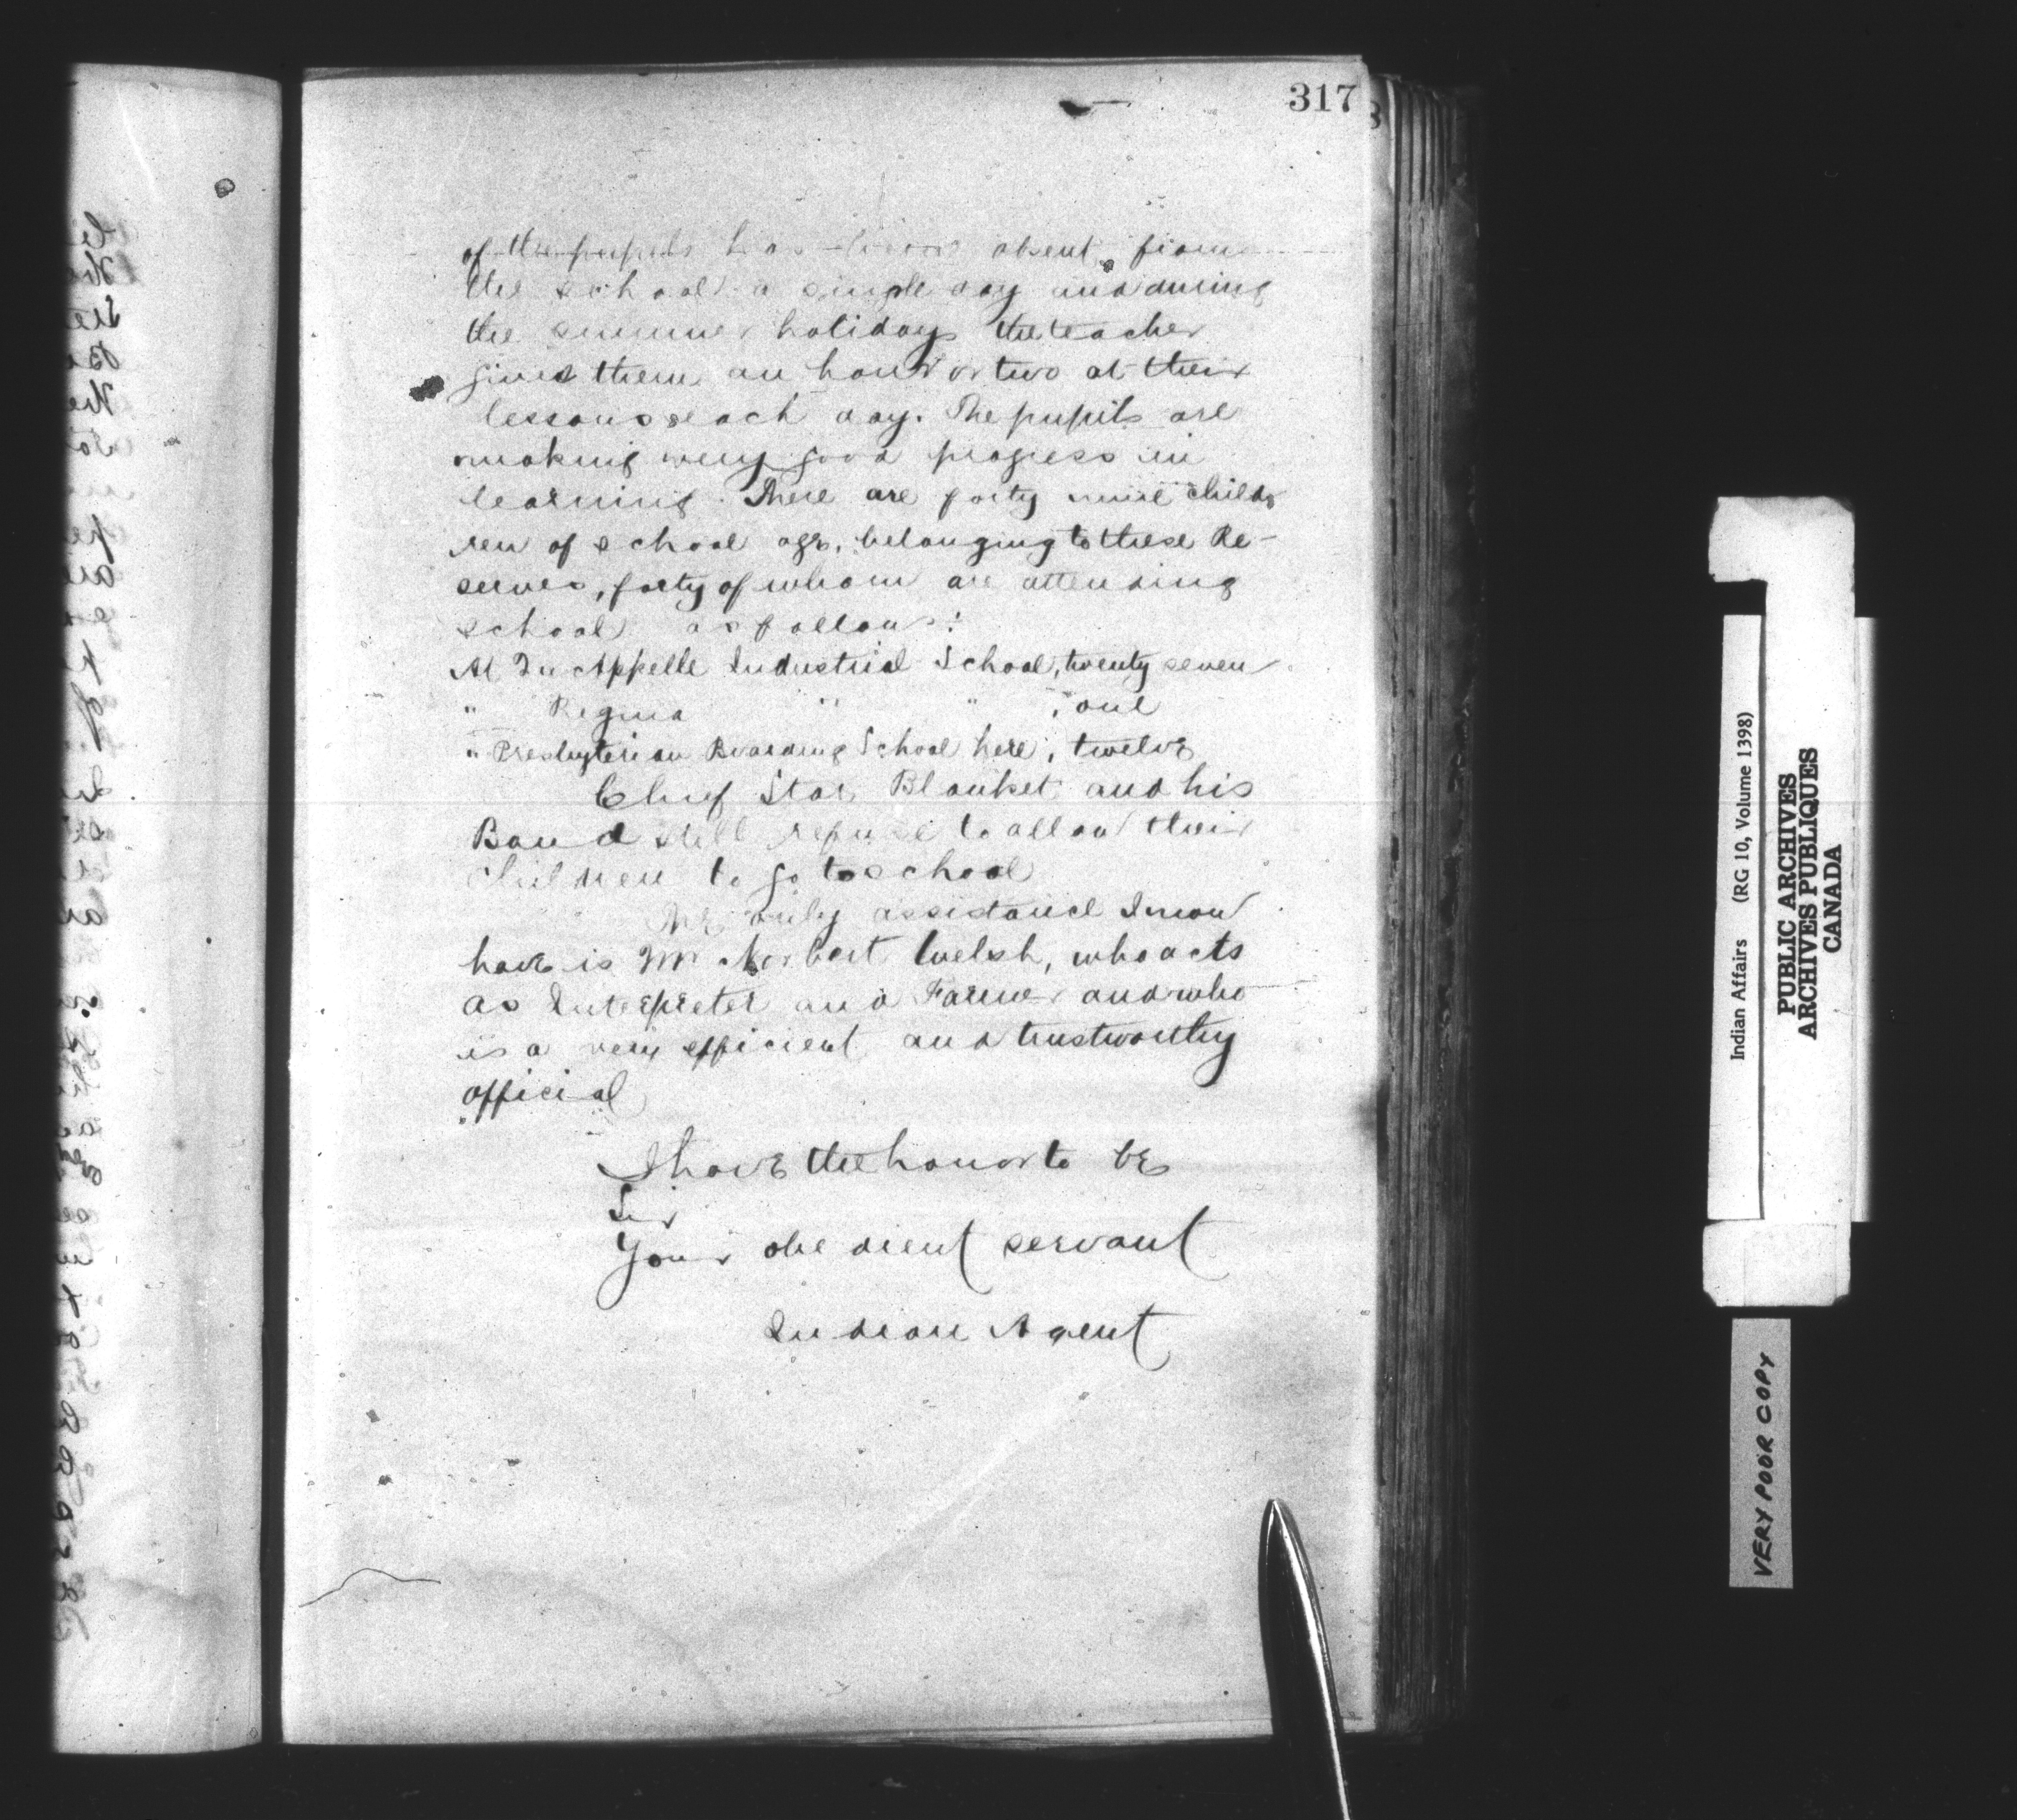 317
of the pupils has been absent from
the school a single day and during
the summer holidays the teacher
gives them an hour or two at their
lessons each day. The pupils are
making very good progress in
learning. There are forty nine child
ren of school age, belonging to these Re-
serves, forty of whom are attending
school as follows:
At Qu'Appelle Industrial School, twenty seven
" Regina " " , one
" Presbyterian Boarding School here, twelve
Chief Star Blanket and his
Band still refuse to allow their
children to go to school
The only assistance I now
have is Mr Norbert Welsh, who acts
as Interpreter and Farmer and who
is a very efficient and trustworthy
official
I have the honor to be
Sir
Your obedient servant
Indian Agent
Indian Affairs (RG 10, Volume 1398)
PUBLIC ARCHIVES
ARCHIVES PUBLIQUES
CANADA
VERY POOR COPY